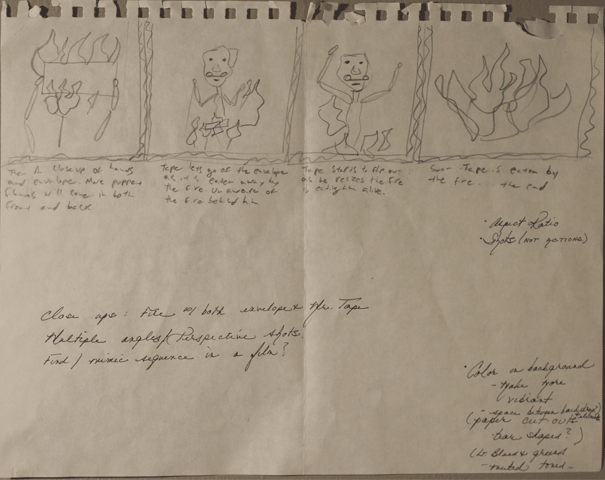 Then A closeup of hands
and envelope. More puppet
flames will come in both
front and back
Tape lets go of the envelope
as it is eaten away by
the fire unaware of
the fire behind him
Tape starts to
as he realizes the fire
is eating him alive.
Soon Tape is eaten by
the fire... the end
· Aspect Ratio
· Shots (NOT actions)
Close ups: Fire w/ both envelope & Mr. Tape
Multiple angles/Perspective shots.
Find/mimic sequence in a film?
· Color on background
- make more
vibrant
- space between backdrop
(paper cut outs
tear shapes?)
(Lt. Blues & greens
- muted tones -